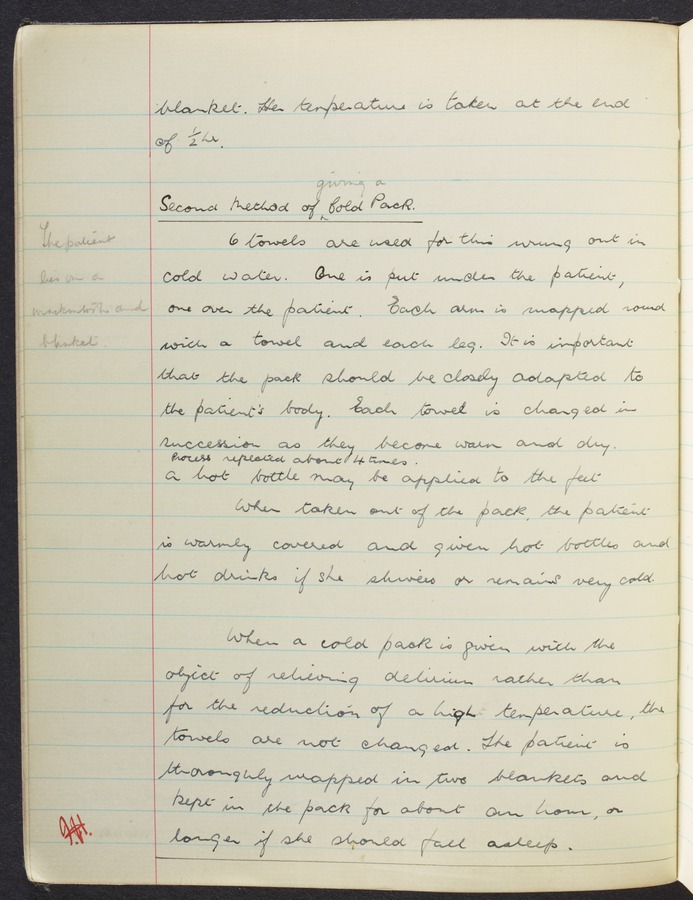 blanket. Her temperature is taken at the end
of ½ hr.
giving a
Second Method of ^ Cold Pack.
The patient
lies on a
mackintosh and
blanket.
6 towels are used for this wrung out in
cold water. One is put under the patient,
one over the patient. Each arm is wrapped round
with a towel and each leg. It is important
that the pack should be closely adapted to
the patient's body. Each towel is changed in
succession as they become warm and dry.
Process repeated about 4 times.
A hot bottle may be applied to the feet
When taken out of the pack, the patient
is warmly covered and given hot bottles and
hot drinks if she shivers or remains very cold.
When a cold pack is given with the
object of relieving delirium rather than
for the reduction of a high temperature, the
towels are not changed. The patient is
thoroughly wrapped in two blankets and
kept in the pack for about an hour, or
longer if she should fall asleep.